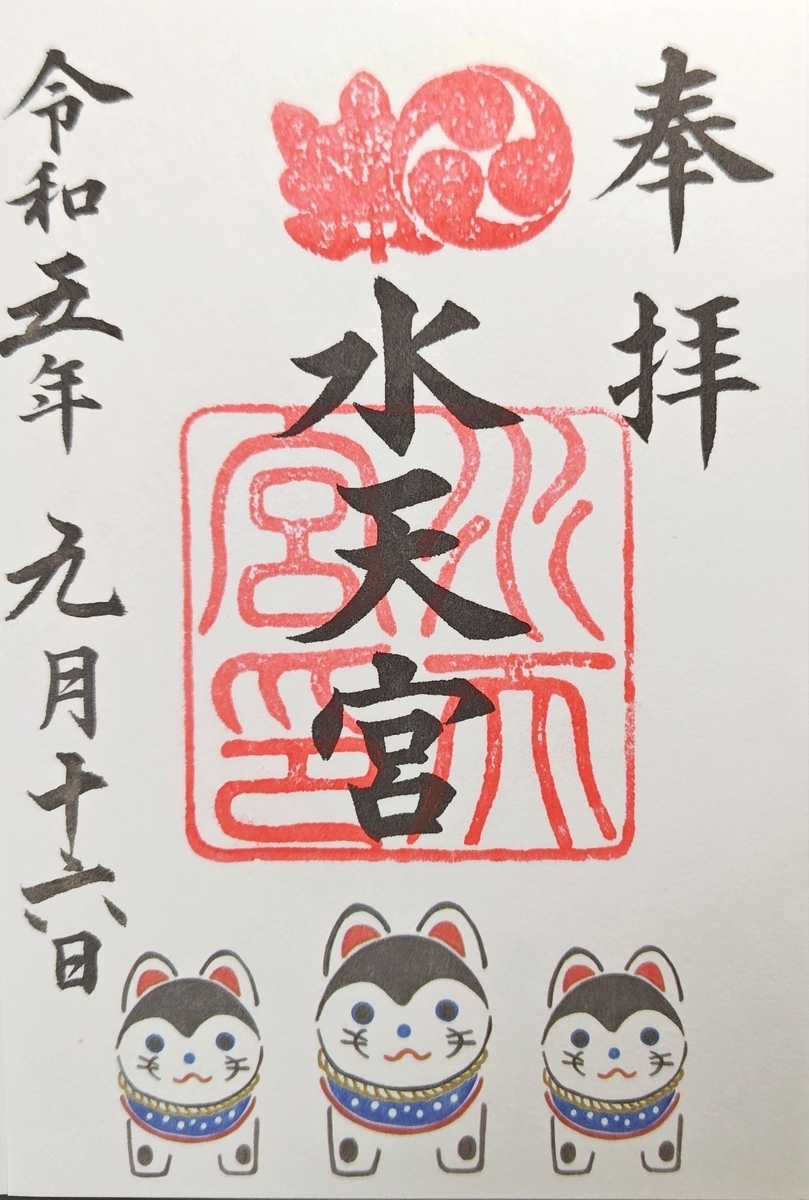 奉拝
水天宮
水天宮印
令和五年 元月十六日